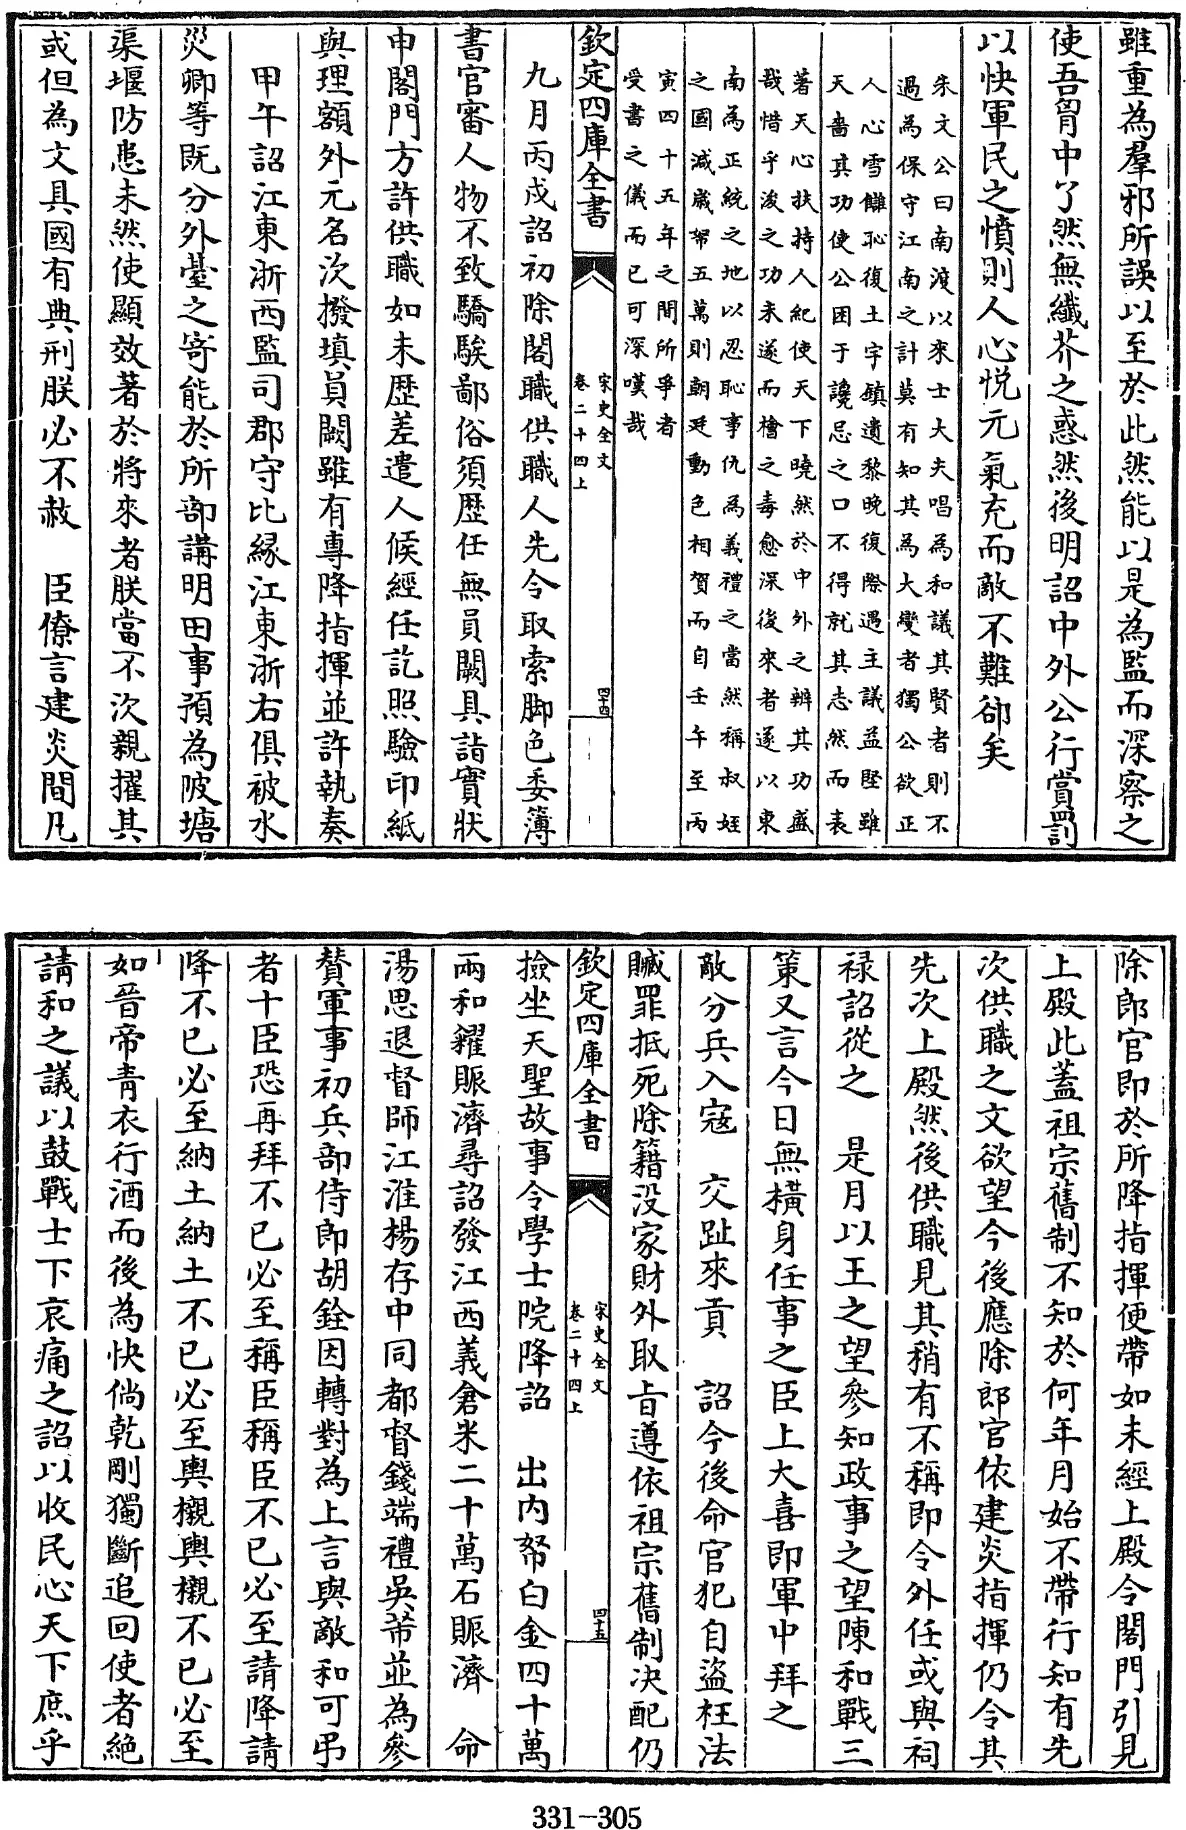 雖重為羣邪所誤以至於此然能以是為監而深察之
使吾胷中了然無纖芥之惑然後明詔中外公行賞罰
以快軍民之憤則人心悦元氣充而敵不難卻矣
朱文公曰南渡以來士大夫唱為和議其賢者則不
過為保守江南之計莫有知其為大變者獨公欲正
人心雪讎恥復土宇鎮遺黎晚復際遇主議益堅雖
天嗇其功使公困于讒忌之口不得就其志然而表
著天心扶持人紀使天下曉然於中外之辨其功盛
哉惜乎浚之功未遂而檜之毒愈深後來者遂以東
南為正統之地以忍恥事仇為義禮之當然稱叔姪
之國減歲幣五萬則朝廷動色相賀而自壬午至丙
寅四十五年之間所爭者
受書之儀而已可深嘆哉
欽定四庫全書
宋史全文
卷二十四上
四十四
九月丙戍詔初除閣職供職人先令取索脚色委簿
書官審人物不致驕騃鄙俗須歴任無員闕具詣實狀
申閣門方許供職如未歴差遣人候經任訖照驗印紙
與理額外元名次撥填員闕雖有專降指揮並許執奏
甲午詔江東浙西監司郡守比緣江東浙右俱被水
災卿等既分外臺之寄能於所部講明田事預為陂塘
渠堰防患未然使顯效著於將來者朕當不次親擢其
或但為文具國有典刑朕必不赦　臣僚言建炎間凡
除郎官即於所降指揮便帶如未經上殿令閣門引見
上殿此蓋祖宗舊制不知於何年月始不帶行知有先
次供職之文欲望今後應除郎官依建炎指揮仍令其
先次上殿然後供職見其稍有不稱即令外任或與祠
禄詔從之　是月以王之望參知政事之望陳和戰三
策又言今日無橫身任事之臣上大喜即軍中拜之
敵分兵入寇　交趾來貢　詔今後命官犯自盜枉法
贓罪抵死除籍沒家財外取㫖遵依祖宗舊制決配仍
欽定四庫全書
宋史全文
卷二十四上
四十五
撿坐天聖故事令學士院降詔　出内帑白金四十萬
兩和糴賑濟尋詔發江西義倉米二十萬石賑濟　命
湯思退督師江淮楊存中同都督錢端禮吳芾並為參
贊軍事初兵部侍郎胡銓因轉對為上言與敵和可弔
者十臣恐再拜不已必至稱臣稱臣不已必至請降請
降不已必至納土納土不已必至輿櫬輿櫬不已必至
如晉帝青衣行酒而後為快倘乾剛獨斷追回使者絶
請和之議以鼓戰士下哀痛之詔以收民心天下庶乎
331-305